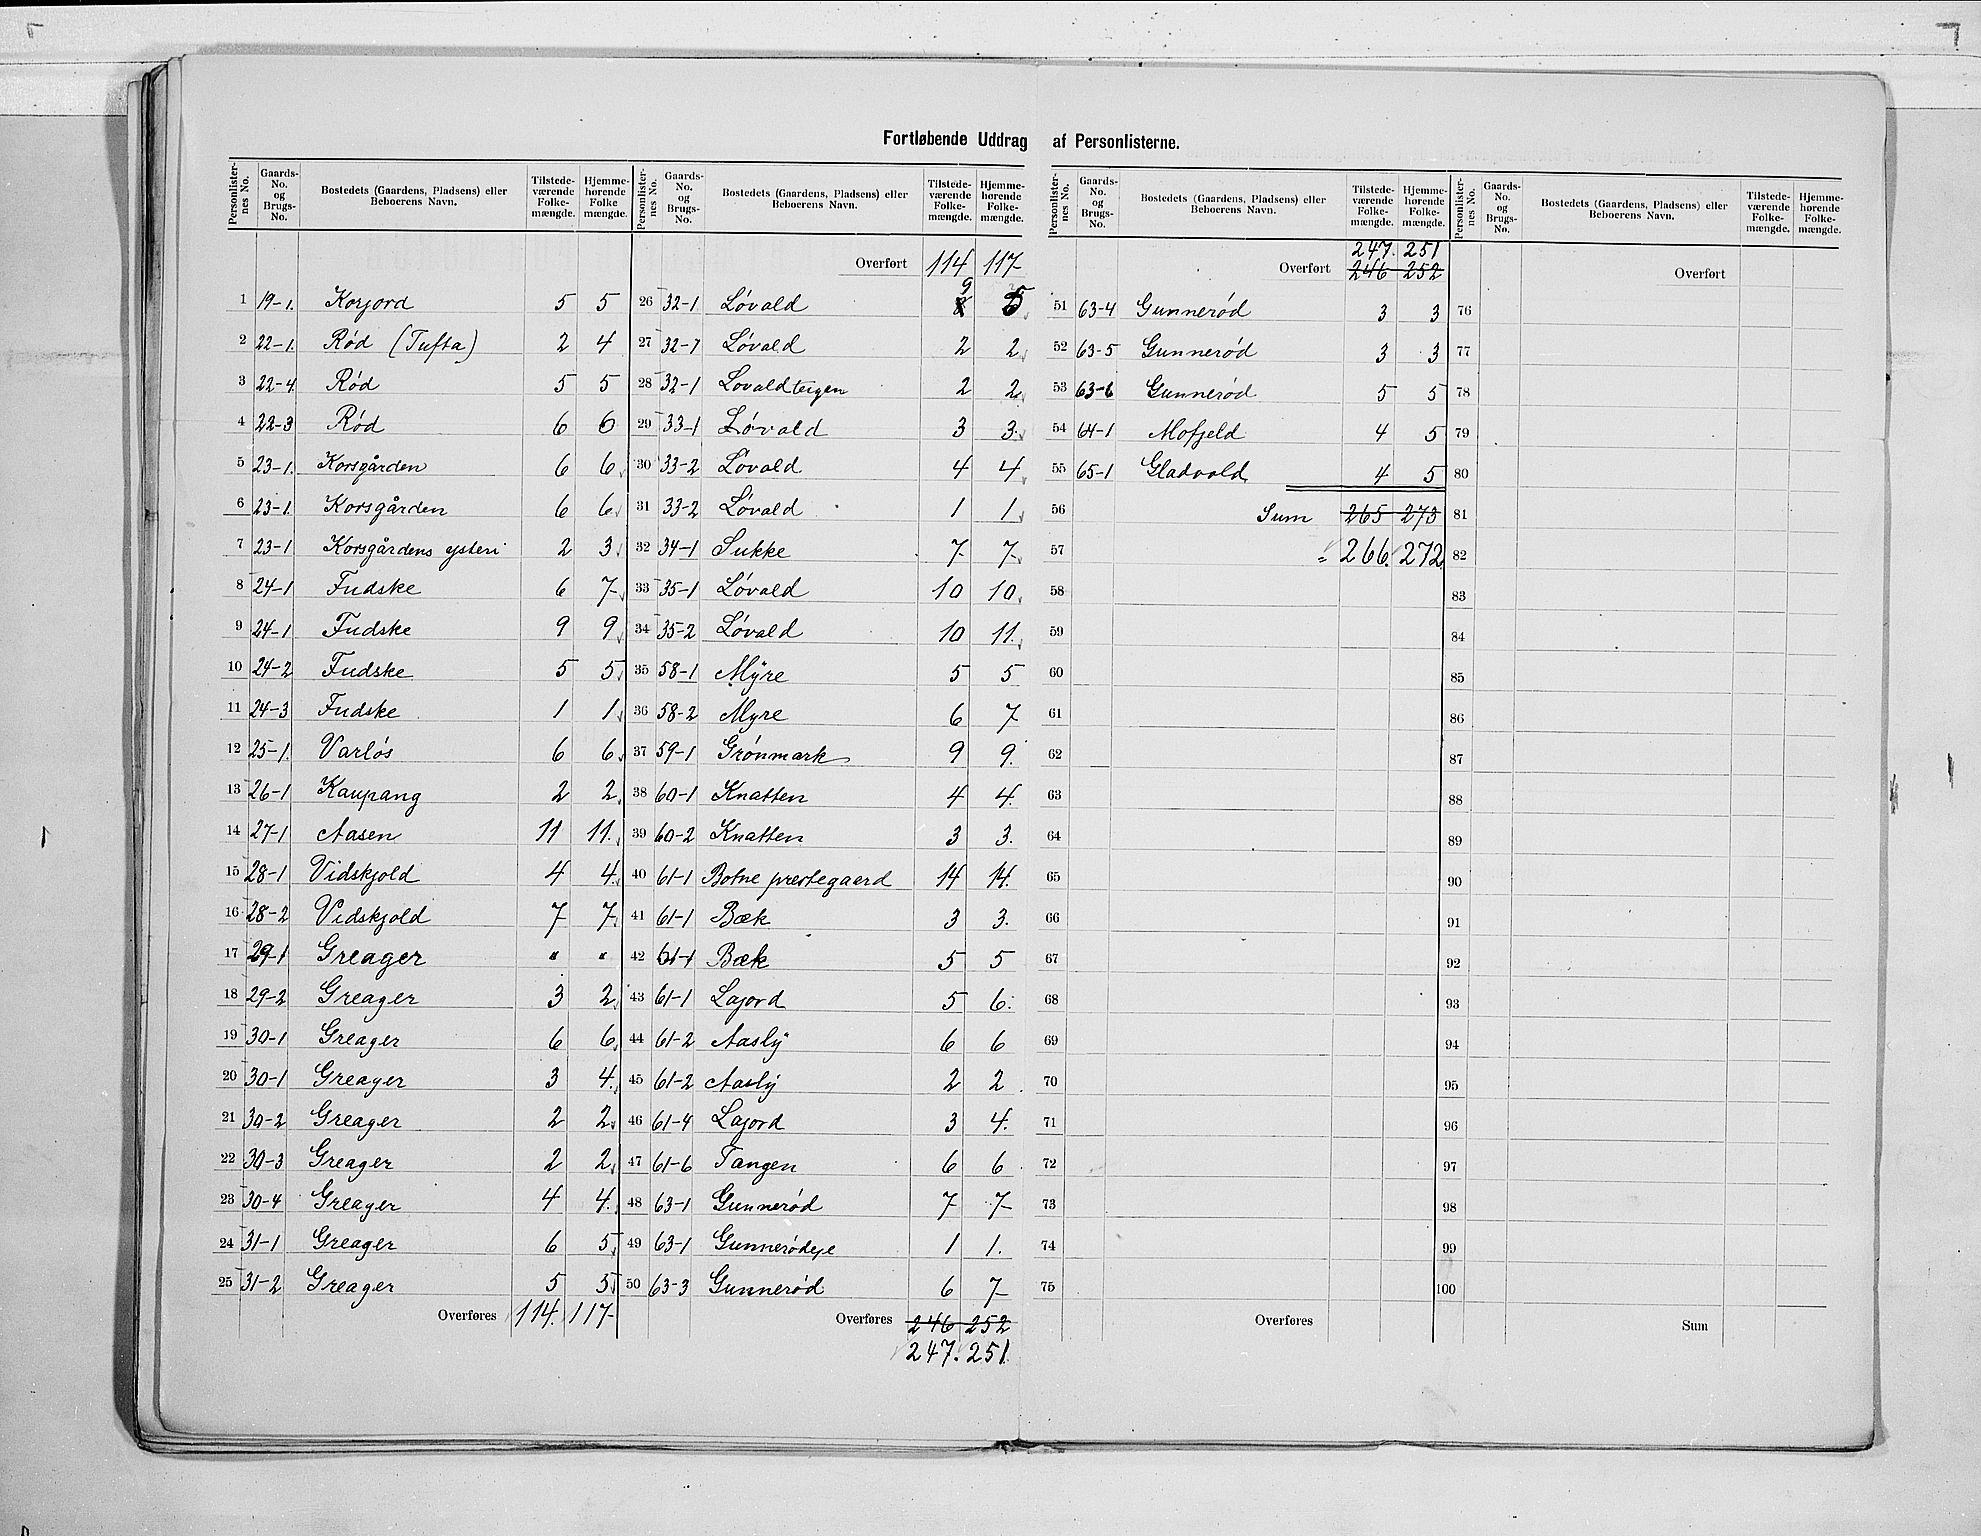 Fortløbende Uddrag af Personlisterne.
Personlister-nes No. Gaards-No. og Brugs-No. Bostedets (Gaardens, Pladsens) eller Beboerens Navn. Tilstede-værende Folke-mængde. Hjemme-hørende Folke mængde.
1 19-1. Korjord 5 5
2 22-1. Rød (Tufta) 2 4
3 22-4. Rød 5 5
4 22-3 Rød 6 6
5 23-1. Korsgården 6 6
6 23-1. Korsgården 6 6
7 23-1 Korsgårdens ysteri 2 3
8 24-1 Fudske 6 7
9 24-1 Fudske 9 9
10 24-2 Fudske 5 5
11 24-3 Fudske 1 1
12 25-1. Varløs 6 6
13 26-1 Kaupang 2 2
14 27-1 Aasen 11 11.
15 28-1 Vidskjold 4 4
16 28-2 Vidskjold 7 7
17 29-1 Greager " "
18 29-2 Greager 3 2
19 30-1 Greager 6 6
20 30-1 Greager 3 4
21 30-2 Greager 2 2
22 30-3 Greager 2 2
23 30-4 Greager 4 4
24 31-1 Greager 6 5
25 31-2 Greager 5 5
Overføres 114. 117
Personlister-nes No. Gaards-No. og Brugs-No. Bostedets (Gaardens, Pladsens) eller Beboerens Navn. Tilstede-værende Folke-mængde. Hjemme-hørende Folke-mængde.
Overført 114 117
26 32-1 Løvald 8 9 5
27 32-1 Løvald 2 2
28 32-1 Løvaldteigen 2 2
29 33-1 Løvald 3 3
30 33-2 Løvald 4 4
31 33-2 Løvald 1 1
32 34-1 Sukke 7 7
33 35-1 Løvald 10 10
34 35-2 Løvald 10 11
35 58-1 Myre 5 5
36 58-2 Myre 6 7
37 59-1 Grønmark 9 9.
38 60-1 Knatten 4 4.
39 60-2 Knatten 3 3.
40 61-1 Botne prestegaard 14 14.
41 61-1 Bæk 3 3.
42 61-1 Bæk 5 5
43 61-1 Lajord 5 6.
44 61-2 Aasly 6 6
45 61-2 Aasly 2 2
46 61-4 Lajord 3 4.
47 61-6 Tangen 6 6
48 63-1 Gunnerød 7 7
49 63-1 Gunnerødeje 1 1.
50 63-3 Gunnerød 6 7
Overføres 246 252
247. 251.
Personlister-nes No. Gaards-No. og Brugs-No. Bostedets (Gaardens, Pladsens) eller Beboerens Navn. Tilstede-værende Folke-mængde. Hjemme-hørende Folke-mængde.
247. 251
Overført 246 252
51 63-4 Gunnerød 3 3
52 63-5 Gunnerød 3 3
53 63-6 Gunnerød 5 5
54 64-1 Mofjeld 4 5
55 65-1 Gladvold 4 5
56 Sum 265 273
57 = 266. 272
58
59
60
61
62
63
64
65
66
67
68
69
70
71
72
73
74
75
Overføres
Personlister-nes No. Gaards-No. og Brugs-No. Bostedets (Gaardens, Pladsens) eller Beboerens Navn. Tilstede-værende Folke-mængde. Hjemme-hørende Folke-mængde.
Overført
76
77
78
79
80
81
82
83
84
85
86
87
88
89
90
91
92
93
94
95
96
97
98
99
100
Sum